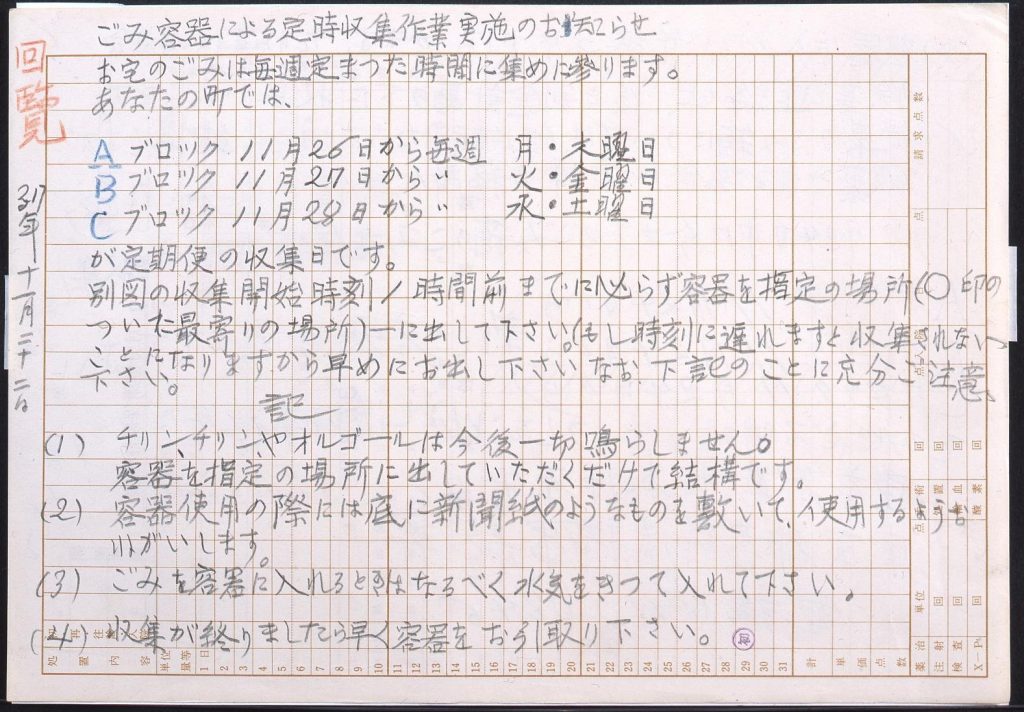 ごみ容器による定時収集作業実施のお知らせ
回覧
お宅のごみは毎週定まつた時間に集めに参ります。
あなたの町では、
Aブロック 11月26日から毎週 月・木曜日
Bブロック 11月27日から〃 火・金曜日
Cブロック 11月28日から〃 水・土曜日
が定期便の収集日です。
別図の収集開始時刻1時間前までに必らず容器を指定の場所(〇印の
ついた最寄りの場所)に出して下さい。(もし時刻に遅れますと収集されない
ことになりますから早めにお出し下さいなお、下記のことに充分ご注意
下さい。
記
(1) チリン、チリンやオルゴールは今後一切鳴らしません。
容器を指定の場所に出していただくだけで結構です。
(2) 容器使用の際には底に新聞紙のようなものを敷いて、使用する
(3) ごみを容器に入れるときはなるべく水気をきつて入れて下さい。
(4) 収集が終りましたら早く容器をお引取り下さい。
年十一月二十二日
処置内容
単位
量等
1日 2 3 4 5 6 7 8 9 10 11 12 13 14 15 16 17 18 19 20 21 22 23 24 25 26 27 28 29 30 31
初
計
単価
点数
請求点数
薬治
注射
検査
X-P